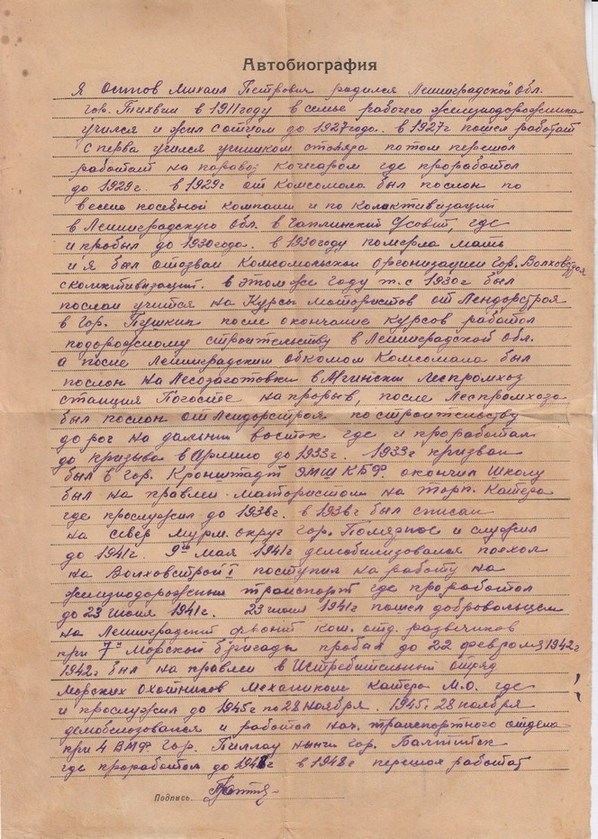 Автобиография
Я Михаил Петрович родился Ленинградской Обл.
гор. Тихвин в 1911 году в семье рабочего железнодорожника
учился и жил с отцом до 1927 года. в 1927 г пошел работат
с перва учился учиником столяра потом перешол
работат на паравоз кочегаром где проработол
до 1929 г. в 1929 г от Комсомола был послон по
весне посевной компании и по колактивизации
в Ленинградскую Обл. в С/Совет, где
и пробыл до 1930 года. в 1930 году померла мать
и я был отозван Комсомольской Организацией гор.
с колективизации. в этом же году т.е 1930 г был
послан учится на Курсы мотористов от Лендорстроя
в Гор. Пушкин после окончание курсов работол
подорожному строительству в Ленинградской Обл.
а после Ленинградским Обкомом Комсомола был
послон на Лесозаготовки в Леспромхоз
станция Погостье на прорыв, после Леспромхоза
был послон от Лендорстроя по строительству
дорог на дальний восток где и проработал
до призыва в Армию до 1933 г. 1933 г призван
был в Гор. Кронштадт ЭМШ КБФ. окончил Школу
был на правлен матористом на торп. Катера
где прослужил до 1936 г. в 1936 г был списан
на север Мурм. округ гор. Полярное и служил
до 1941 г. 9го Мая 1941 г демобилизовался поехол
на Волховстрой I поступил на работу на
железнодорожный транспорт где проработол
до 23 июня 1941 г. 23 июня 1941 г пошел добровольцем
на Ленинградский фронт ком. отд. разведчиков
при 7й Морской бригады пробыл до 22 февроля 1942 г
1942 г был на правлен в Истребительный отряд
Морских Охотников Механиком катера М.О. где
и прослужил до 1945 г по 28 ноября. 1945 г. 28 ноября
демобилизовался и работол нач. транспортного отдела
при 4 ВМФ гор. Пиллау нынче гор. Балтийск
где проработол до 1948 г в 1948 г перешол работат
Подпись